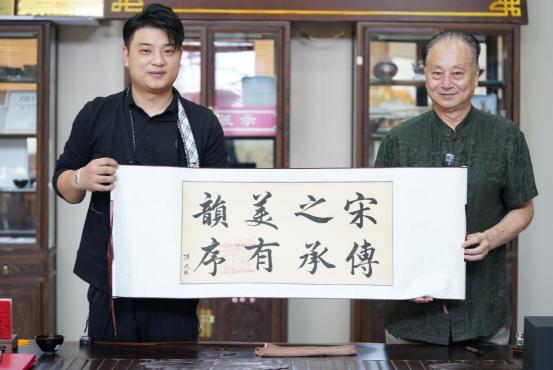 宋之美韻
傳承有序
展示